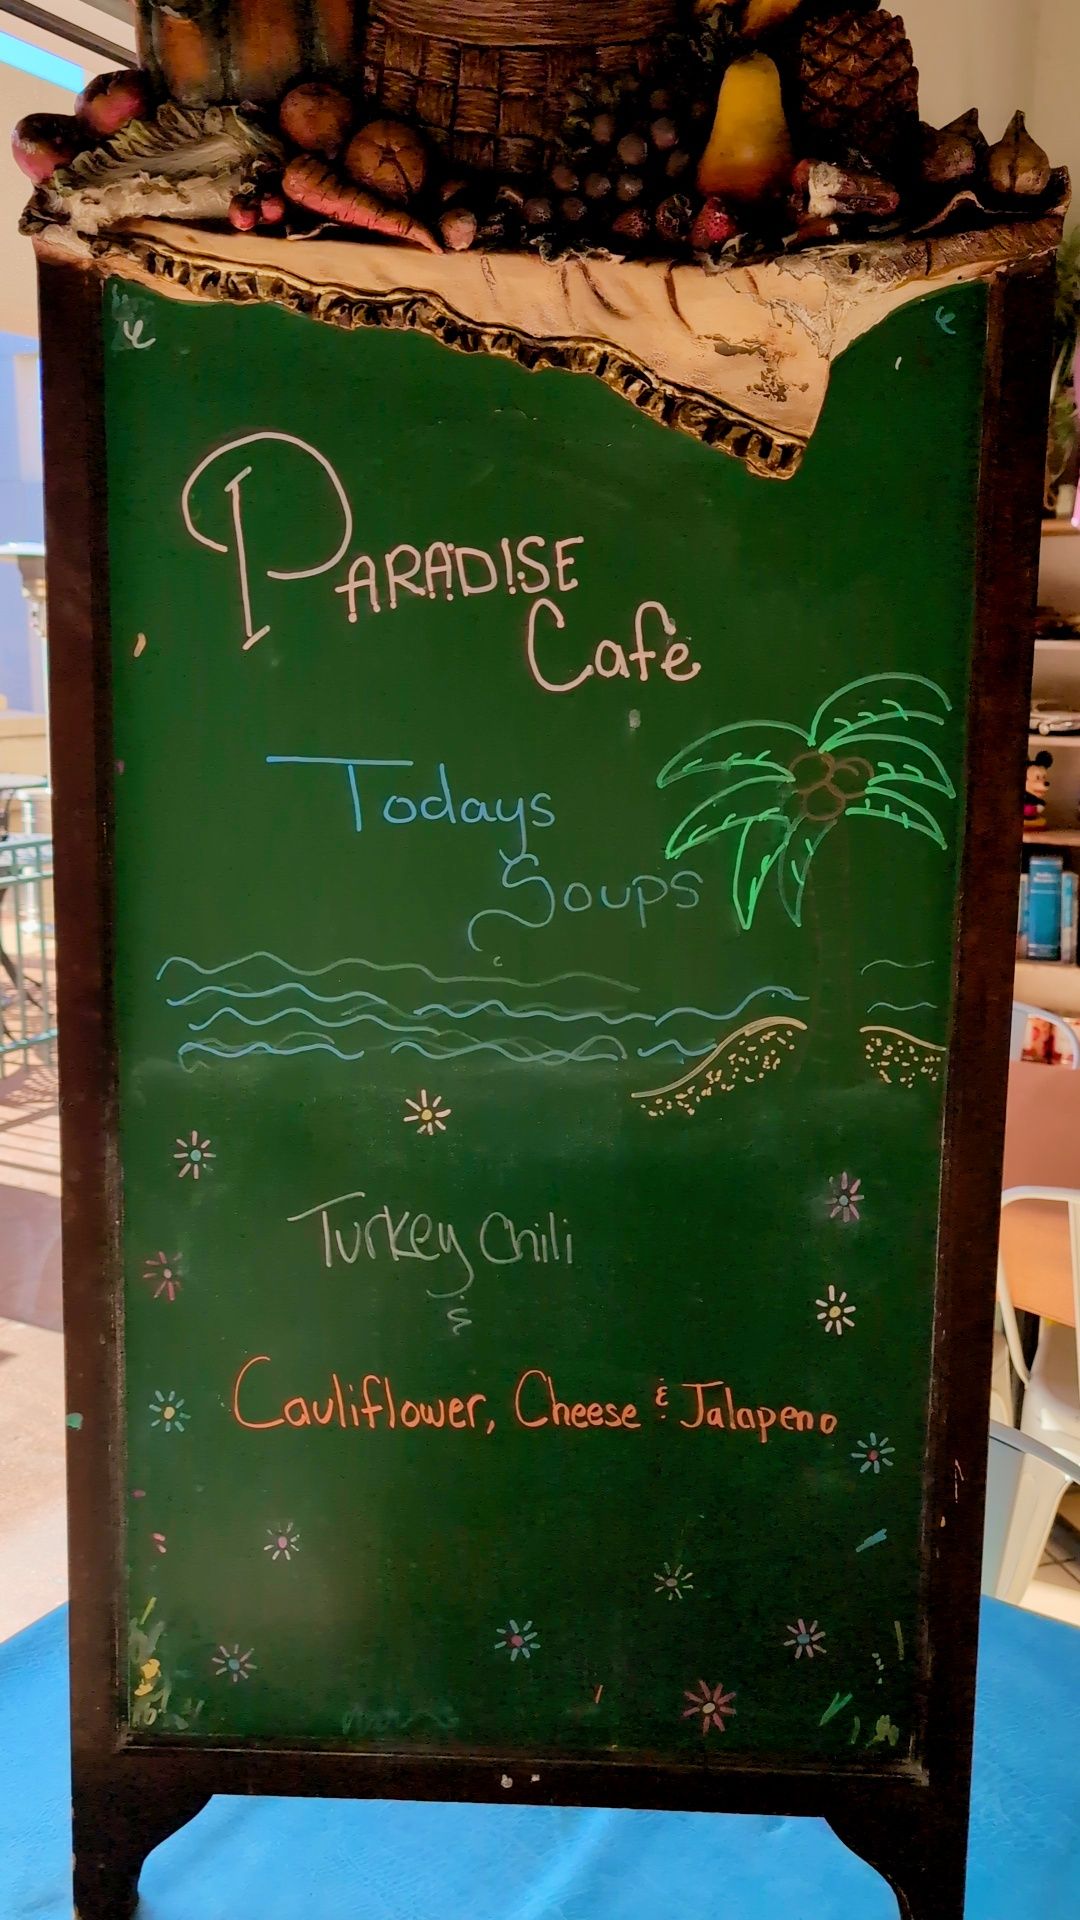 PARADISE
Cafe
Todays
Soups
Turkey Chili
&
Cauliflower, Cheese & Jalapeno